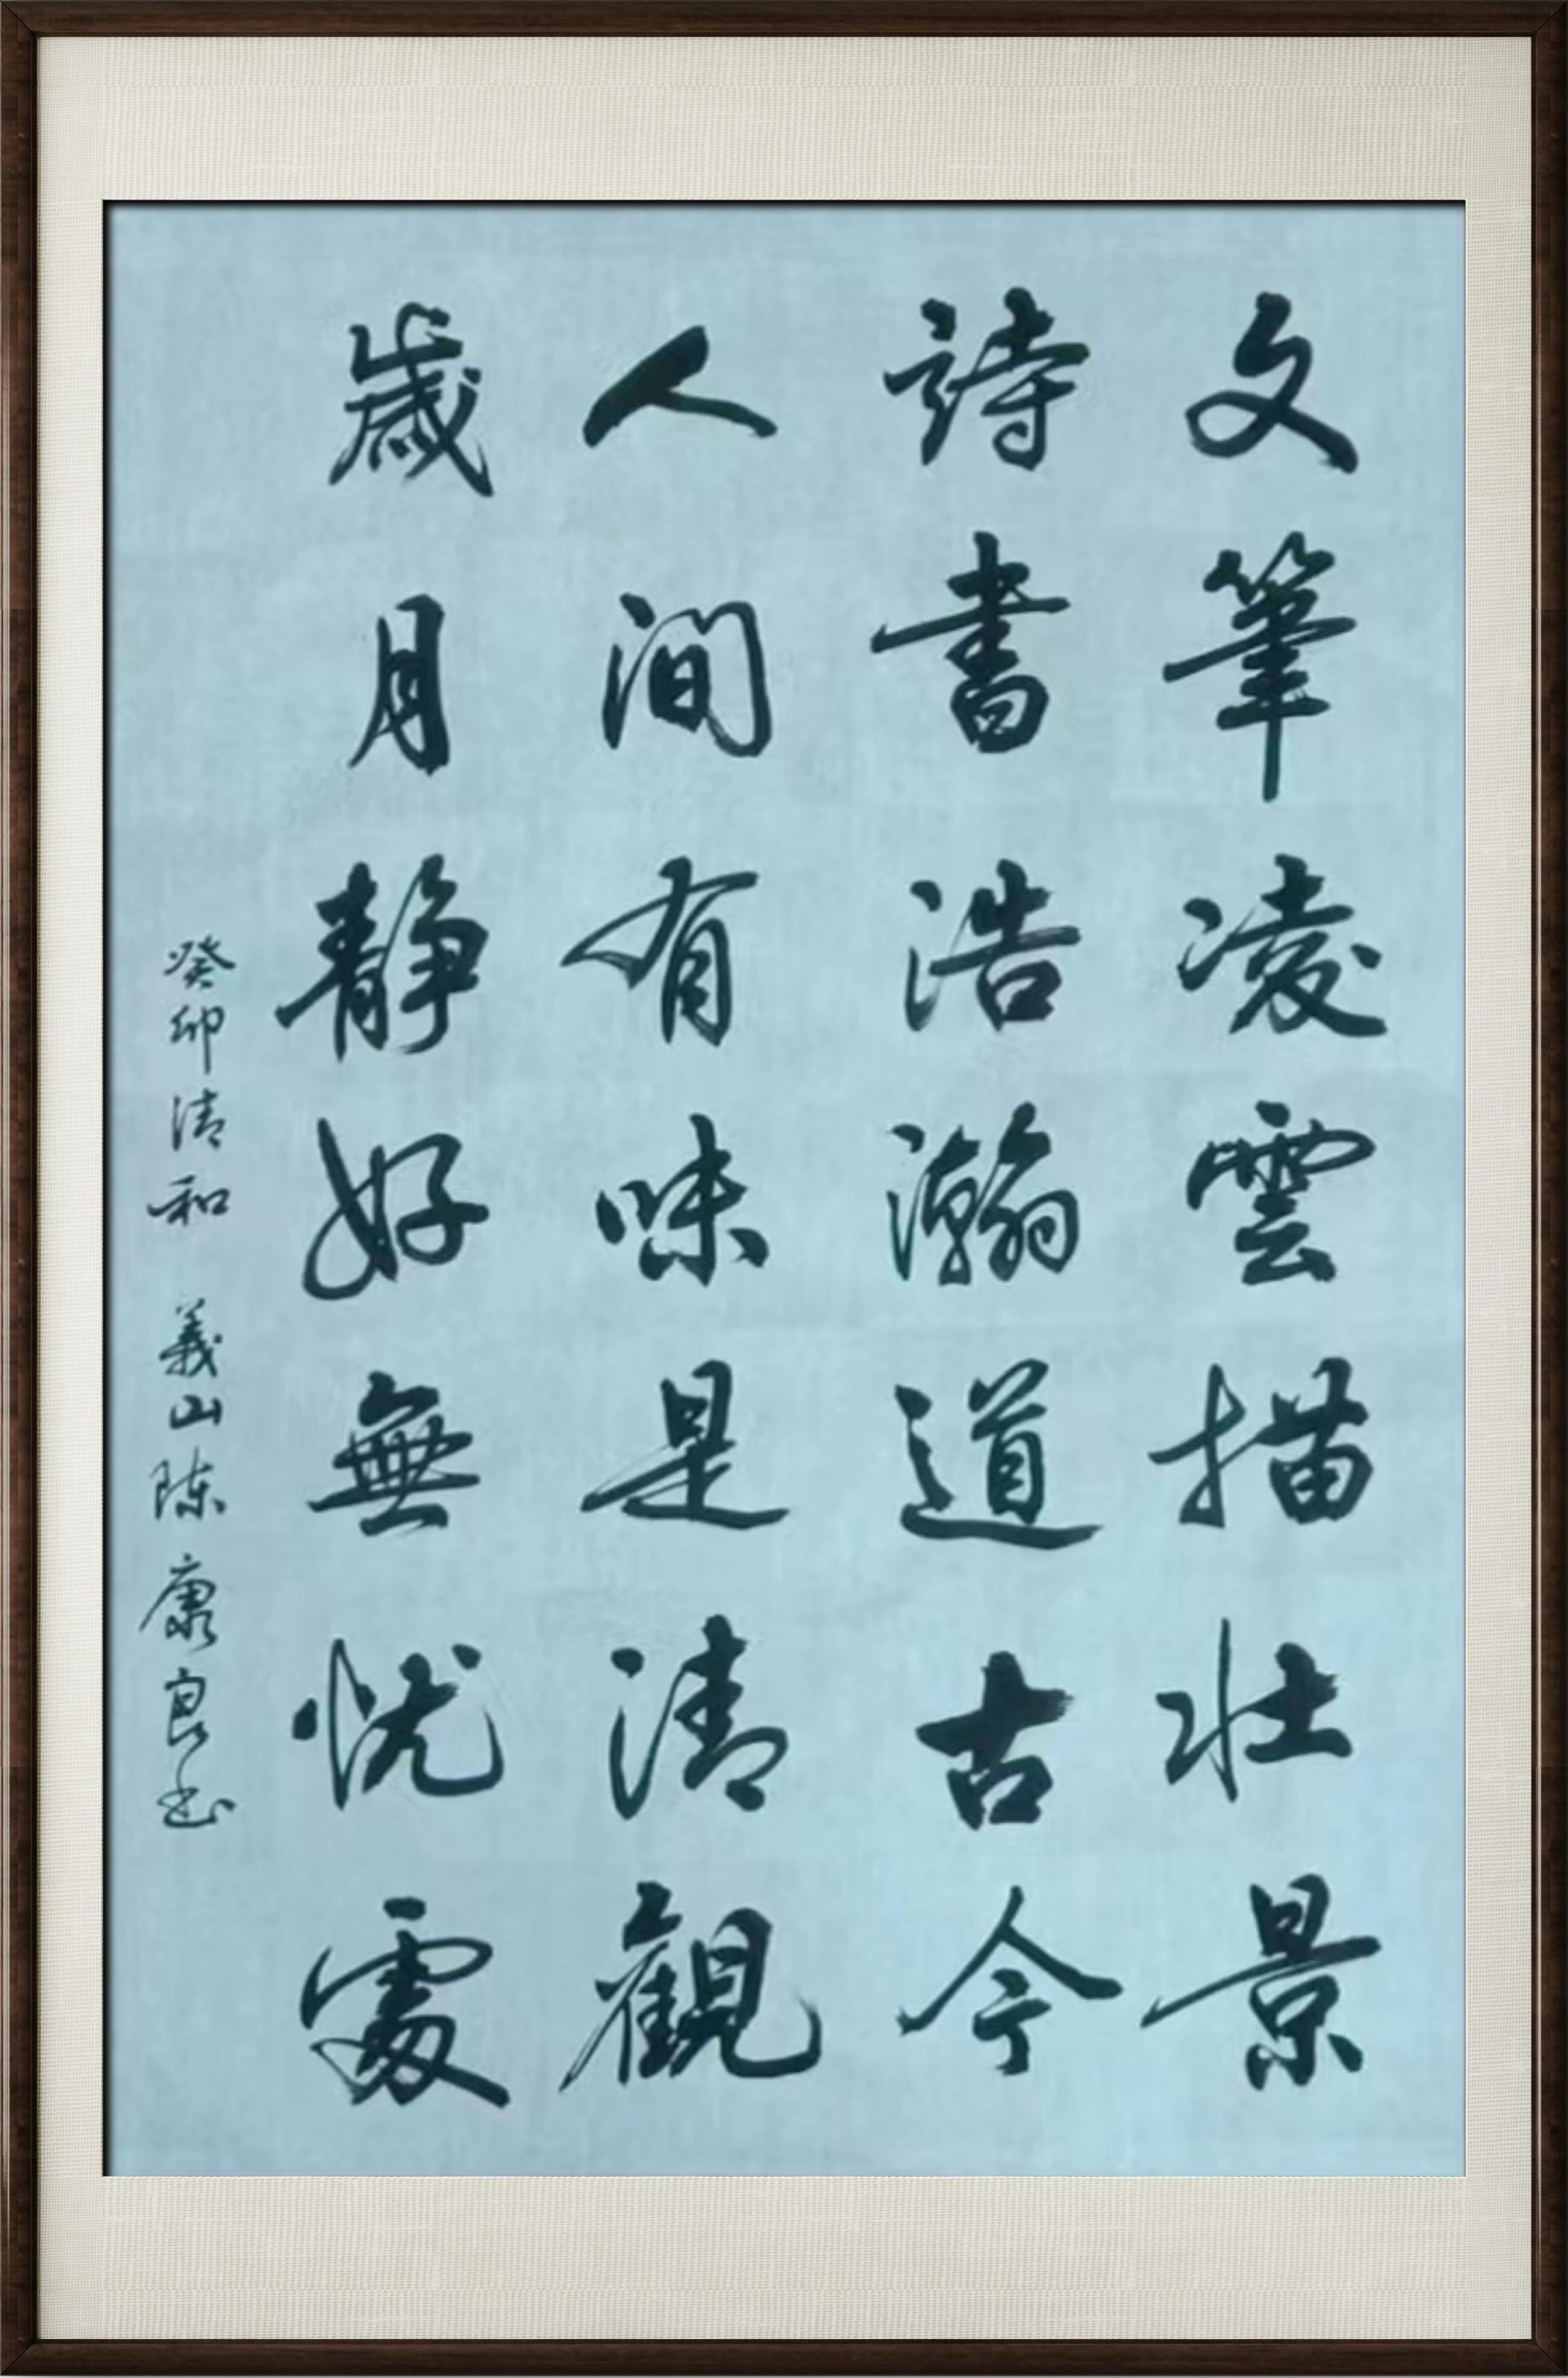 文筆凌雲描壯景
詩書浩瀚道古今
人间有味是清觀
歲月静好無忧處
癸卯清和 義山陈康良书